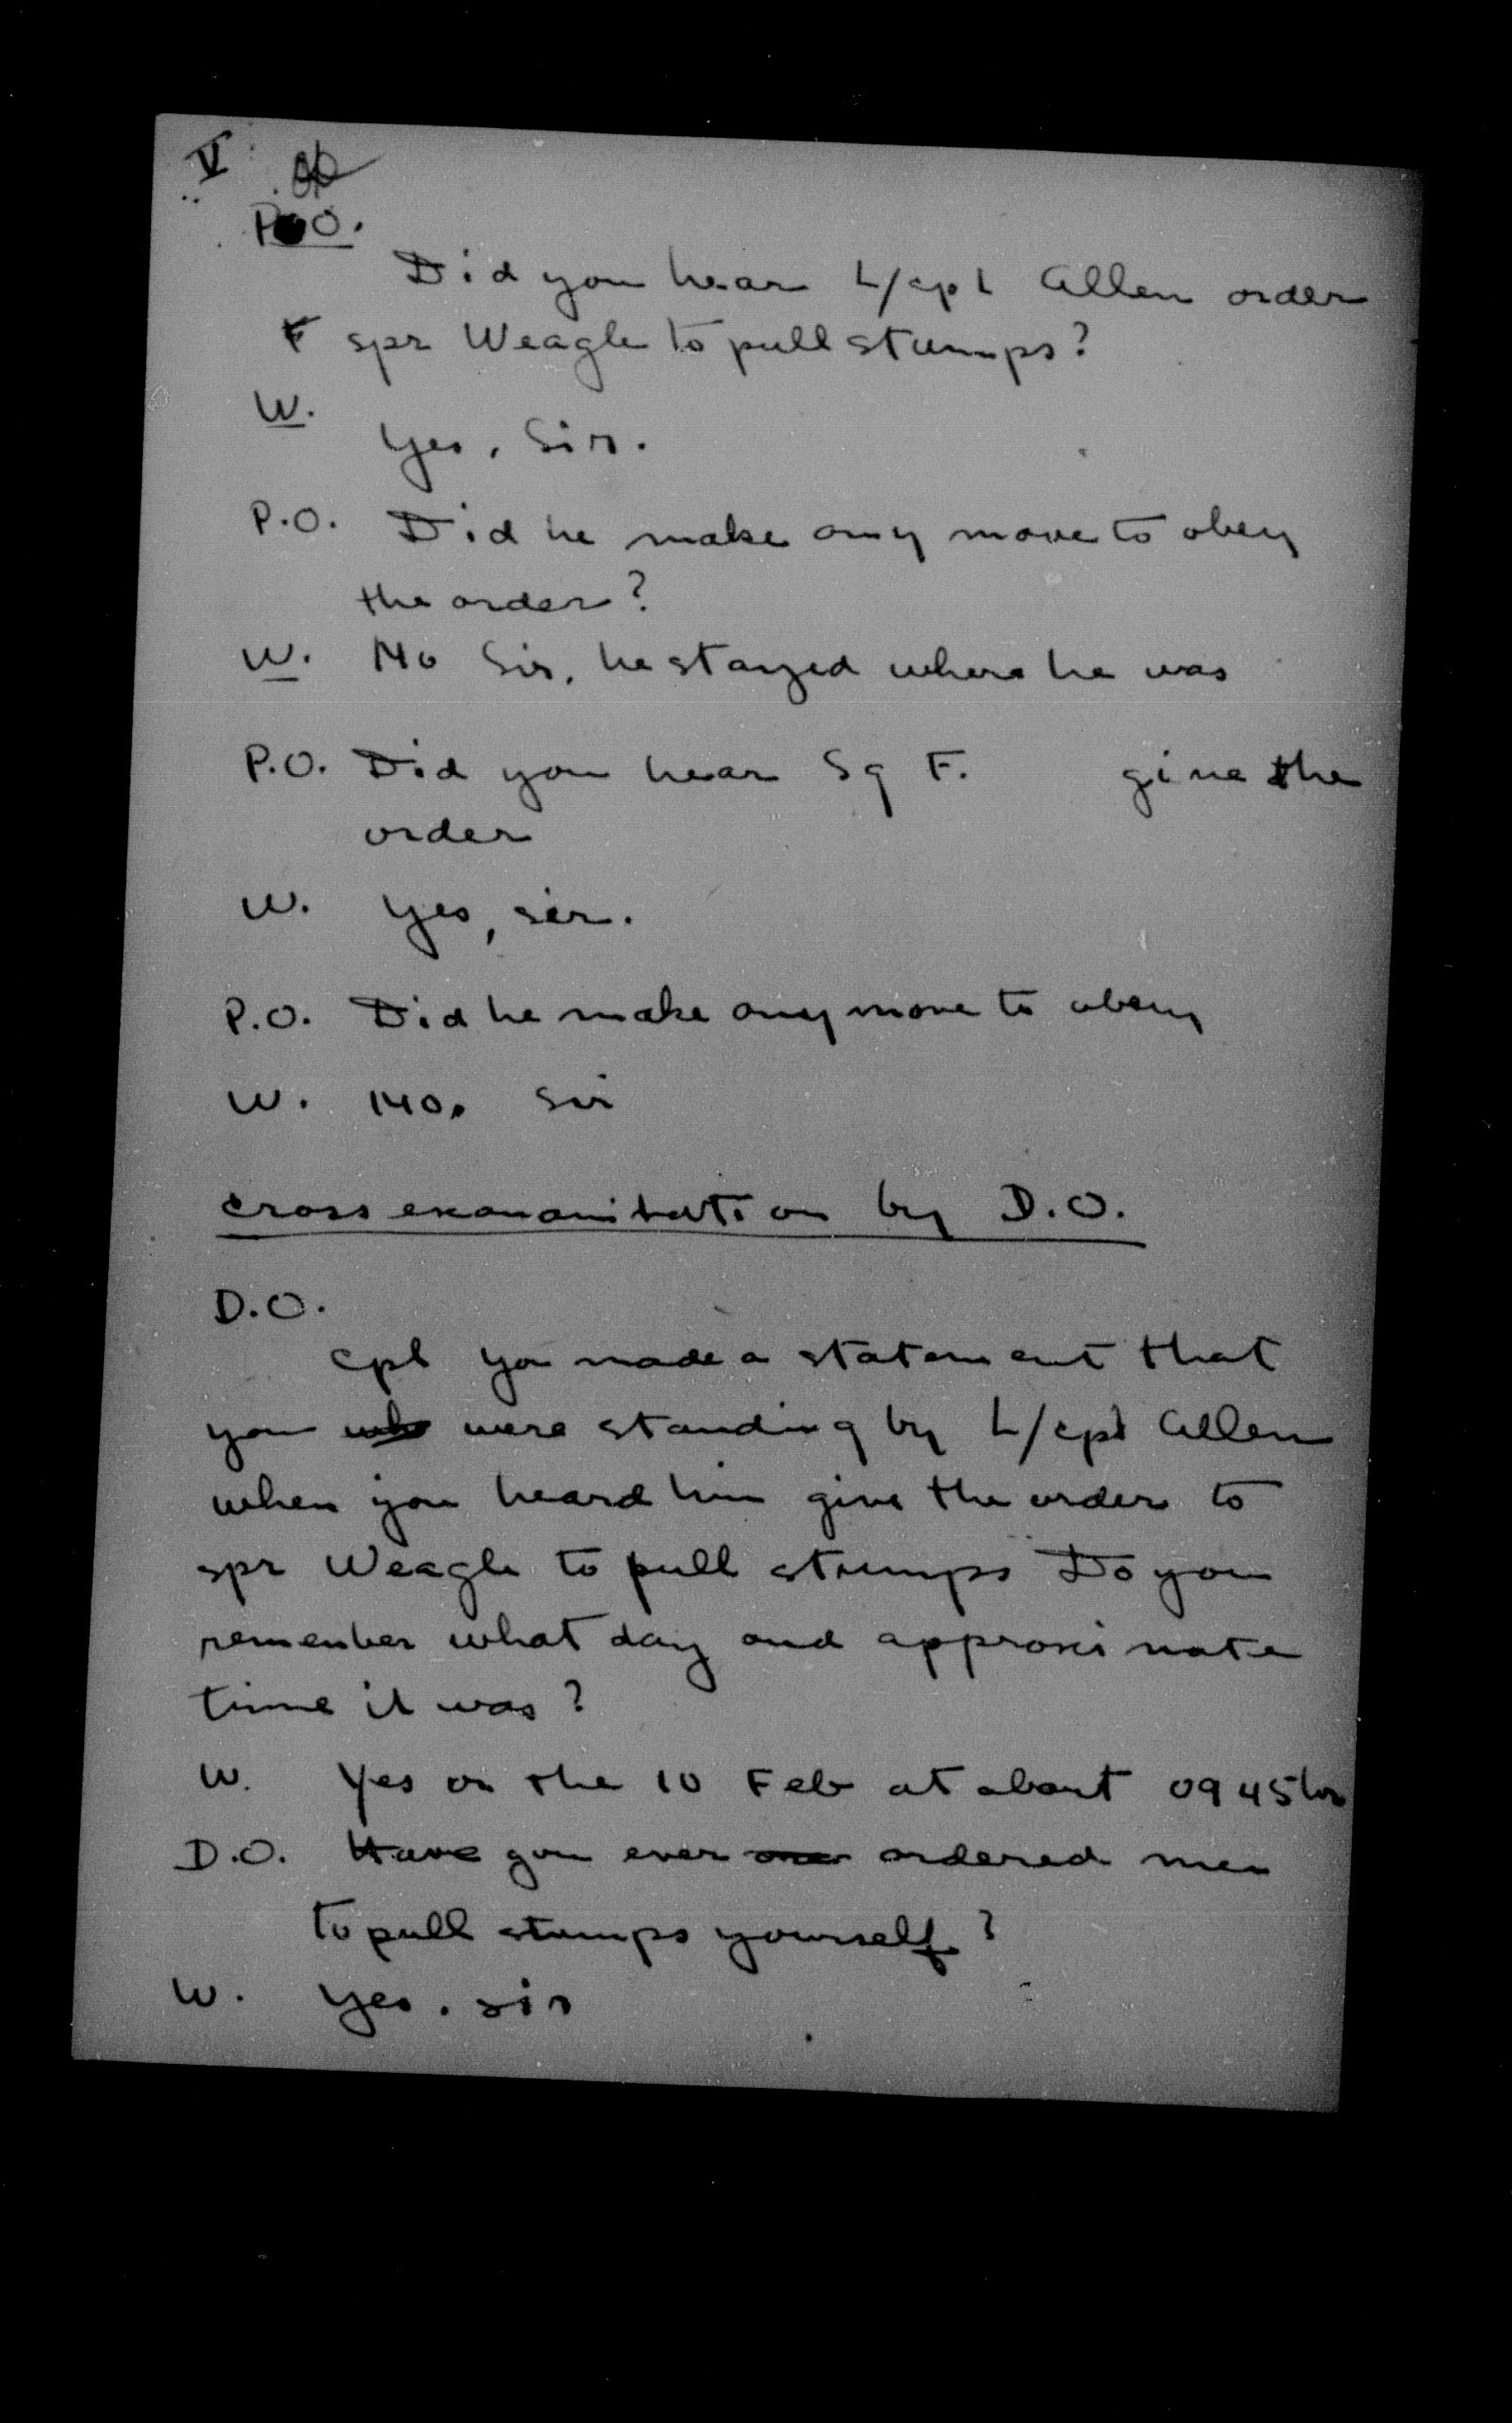 V
P.O.
Did you hear L/cpl Allen order
spr Weagle to pull stumps?
W.
Yes, Sir.
P.O. Did he make any move to obey
the order?
W. No Sir, he stayed where he was
P.O. Did you hear Sg F. give the
order
W. Yes, sir.
P.O. Did he make any move to obey
W. No. Sir
cross examanitation by D.O.
D.O.
cpl you made a statement that
you were standing by L/cpl Allen
when you heard him give the order to
spr Weagle to pull stumps Do you
remember what day and approximate
time it was?
W. Yes on the 10 Feb at about 0945 hr
D.O. Have you ever ordered men
to pull stumps yourself?
W. Yes. sir